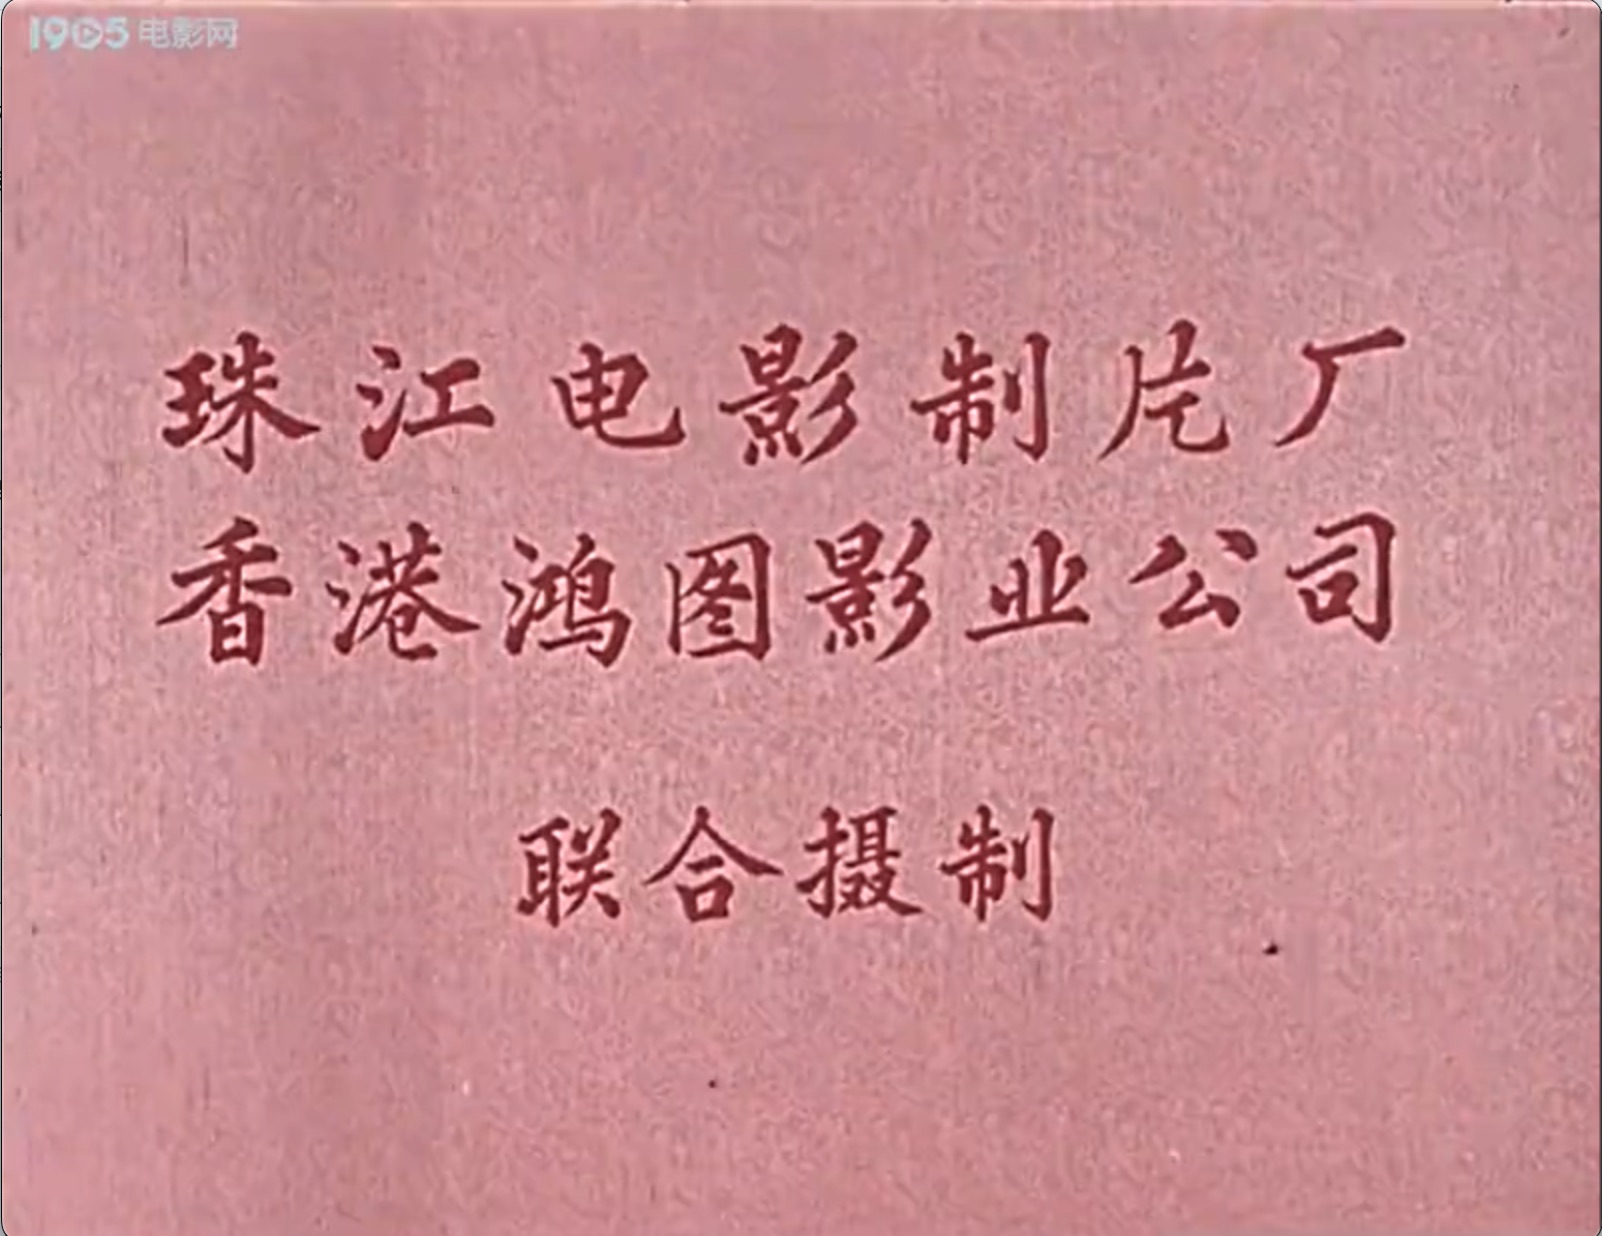 1905电影网
珠江电影制片厂
香港鸿图影业公司
联合摄制